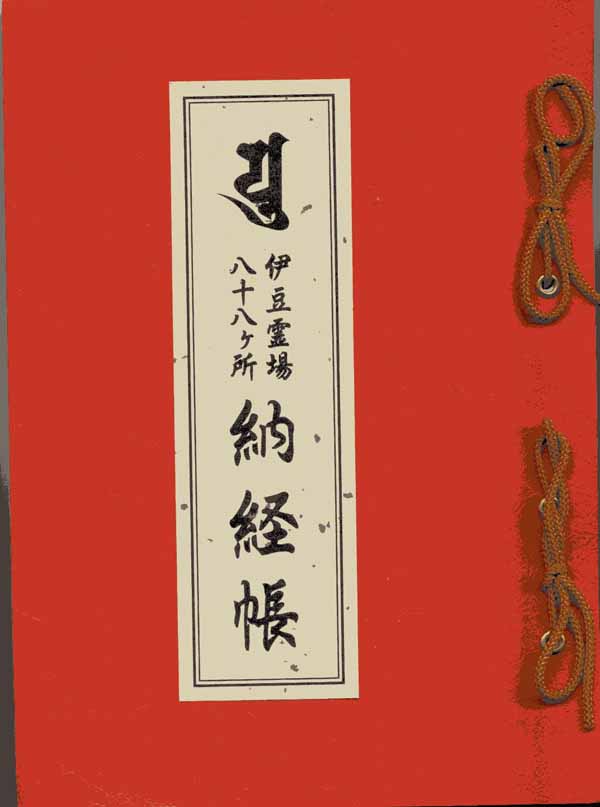 伊豆霊場
八十八ヶ所
納経帳